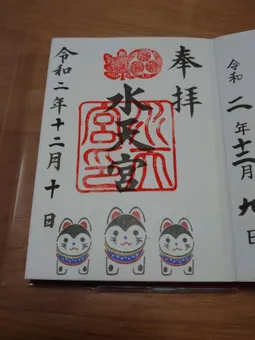 奉拝
水天宮
令和二年十二月十日
令和二年十二月九日